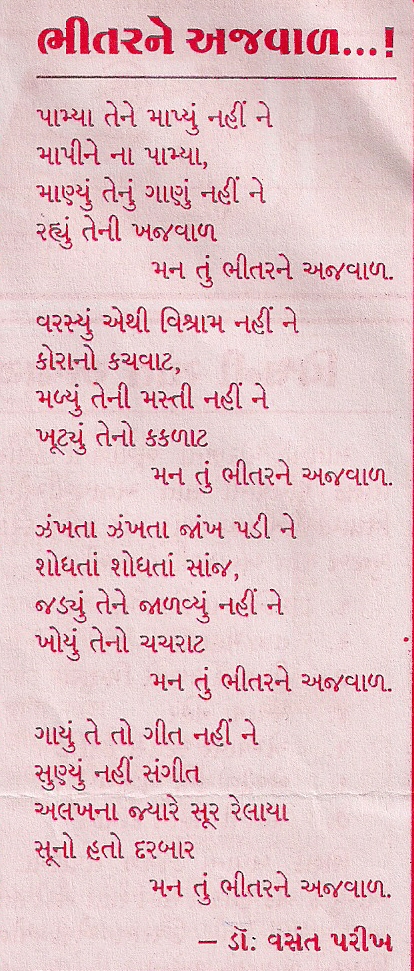 ભીતરને અજવાળ...!
પામ્યા તેને માપ્યું નહીં ને
માપીને ના પામ્યા,
માણ્યું તેનું ગાણું નહીં ને
રહ્યું તેની ખજવાળ
મન તું ભીતરને અજવાળ.
વરસ્યું એથી વિશ્રામ નહીં ને
કોરાનો કચવાટ,
મળ્યું તેની મસ્તી નહીં ને
ખૂટ્યું તેનો કકળાટ
મન તું ભીતરને અજવાળ.
ઝંખતા ઝંખતા જાંખ પડી ને
શોધતાં શોધતાં સાંજ,
જડ્યું તેને જાળવ્યું નહીં ને
ખોયું તેનો ચચરાટ
મન તું ભીતરને અજવાળ.
ગાયું તે તો ગીત નહીં ને
સુણ્યું નહીં સંગીત
અલખના જ્યારે સૂર રેલાયા
સૂનો હતો દરબાર
મન તું ભીતરને અજવાળ.
– ડૉ: વસંત પરીખ